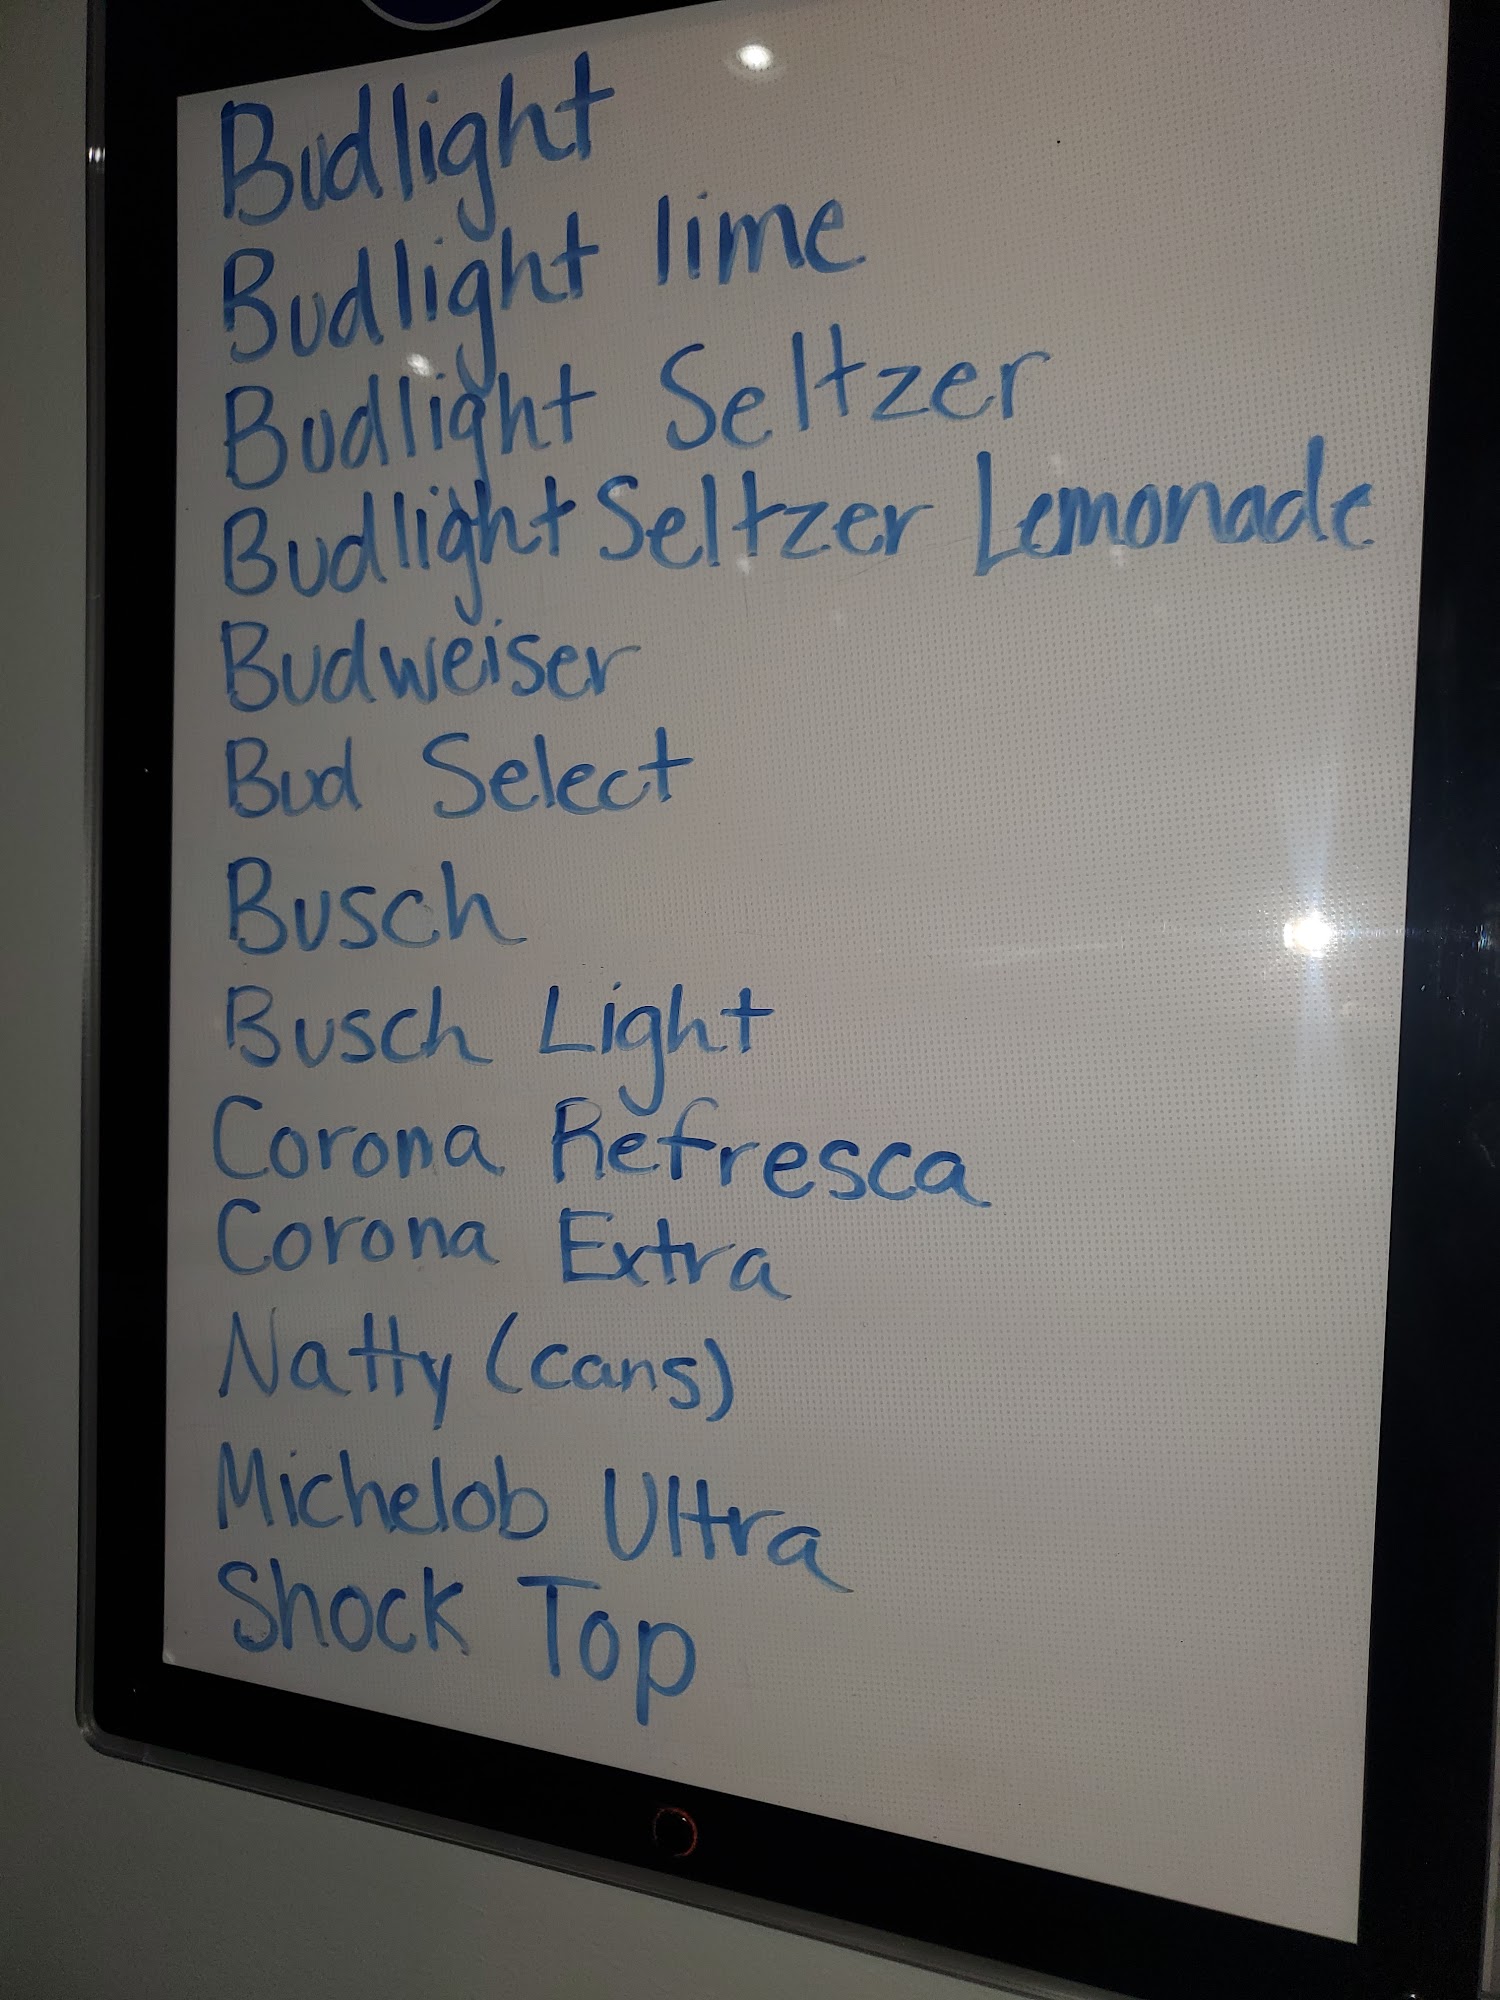 Budlight
Budlight lime
Budlight Seltzer
Budlight Seltzer Lemonade
Budweiser
Bud Select
Busch
Busch Light
Corona Refresca
Corona Extra
Natty (cans)
Michelob Ultra
Shock Top